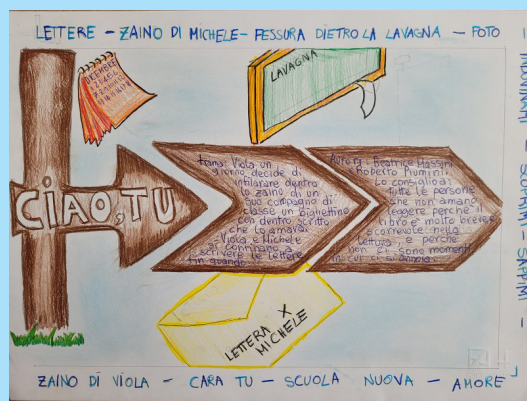 LETTERE - ZAINO DI MICHELE - FESSURA DIETRO LA LAVAGNA - FOTO
LAVAGNA
DICEMBRE
CIAO, TU
Trama: Viola un
giorno decide di
infilare dentro
lo zaino di un
suo compagno di
classe un bigliettino
con dentro scritto
che lo amava.
Viola e Michele
continuano a
scrivere le lettere
fin quando
Autori: Beatrice Masini
Roberto Piumini.
Lo consiglio a
tutte le persone
che non amano
leggere perché il
libro è molto breve
scorrevole nella
lettura e perché
non ci sono momenti
in cui ci si annoia.
LETTERA X
MICHELE
ZAINO DI VIOLA - CARA TU - SCUOLA NUOVA - AMORE